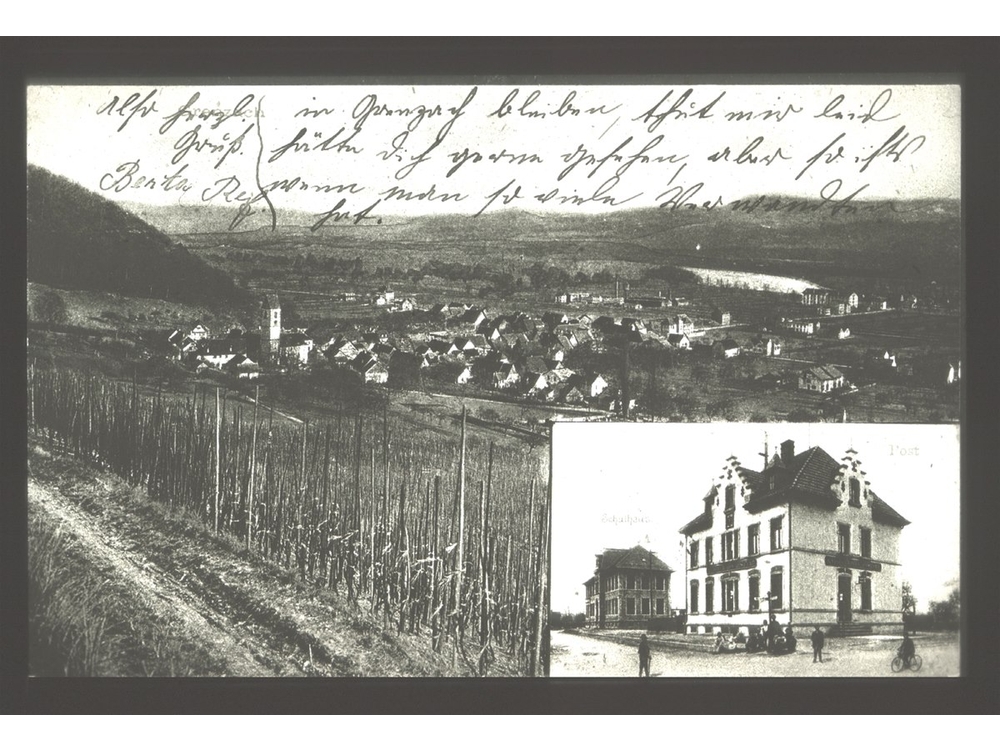 Grenzach
also herzl.
Gruß.
Berta
in Grenzach bleiben, thut mir leid
hätte dich gerne gesehen, aber so ists
wenn man so viele Verwandten
hat.
Post
Schulhaus